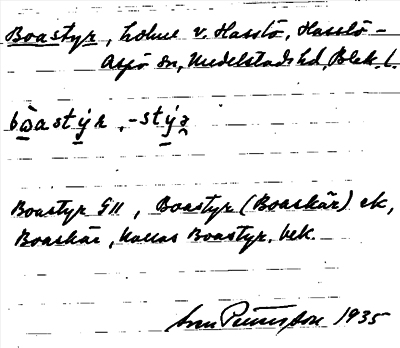 Boastyr, holme v. Hasslö, Hasslö-
Aspö sn, Medelstads hd, Blek. l.
bòastýr, -stýə
Boastyr GII, Boastyr (Boaskär) ek,
Boaskär, kallas Boastyr, bek.
1935